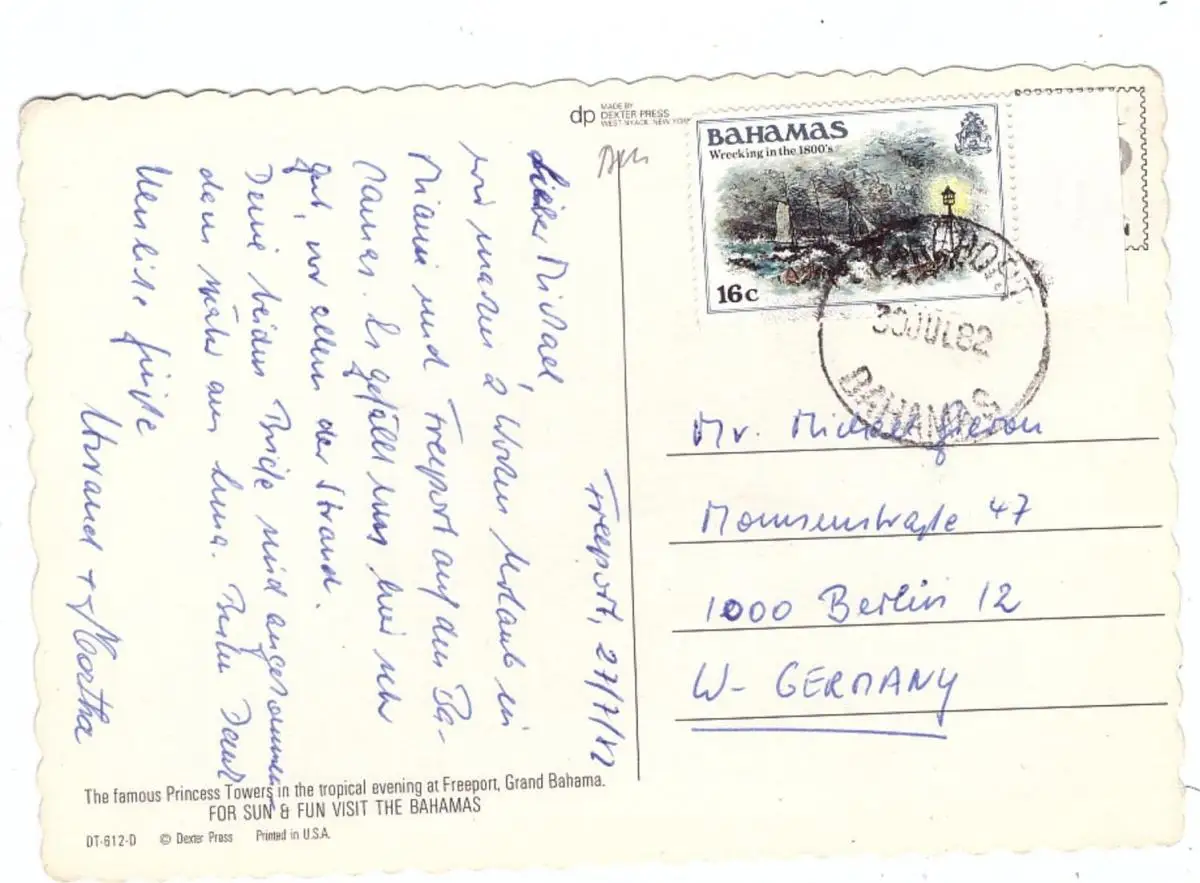 dp MADE BY
DEXTER PRESS
WEST NYACK, NEW YORK
BAHAMAS
Wrecking in the 1800's
16c
30 JUL 82
BAHAMAS
Freeport, 27/7/82
Lieber Michael
wir machen 2 Wochen Urlaub in
Miami und Freeport auf den Ba-
hamas. Es gefällt uns hier sehr
gut, vor allem der Strand.
Deine beiden Briefe sind angekommen
dem
Herzliche Grüße
+ Martha
Mr. Michael
Mommsenstraße 47
1000 Berlin 12
W- GERMANY
The famous Princess Towers in the tropical evening at Freeport, Grand Bahama.
FOR SUN & FUN VISIT THE BAHAMAS
DT-612-D © Dexter Press Printed in U.S.A.